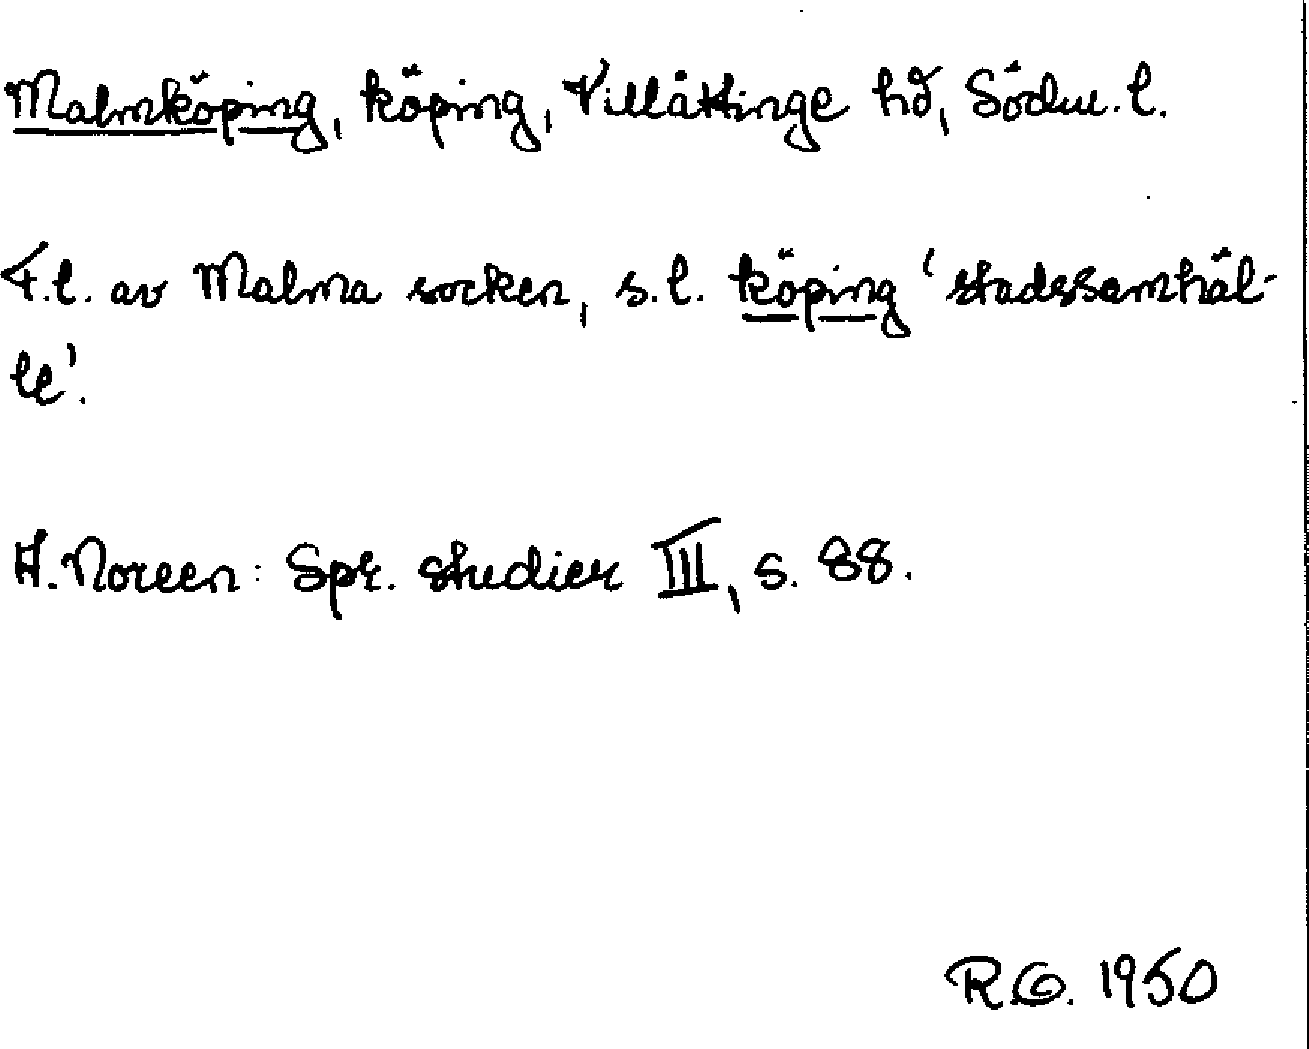 Malmköping, köping, Villåttinge hd, Södm. l.
F.l. av Malma socken, s.l. köping 'stadssamhäl-
le'.
A. Noreen: Spr. studier III, s. 88.
R.G. 1950